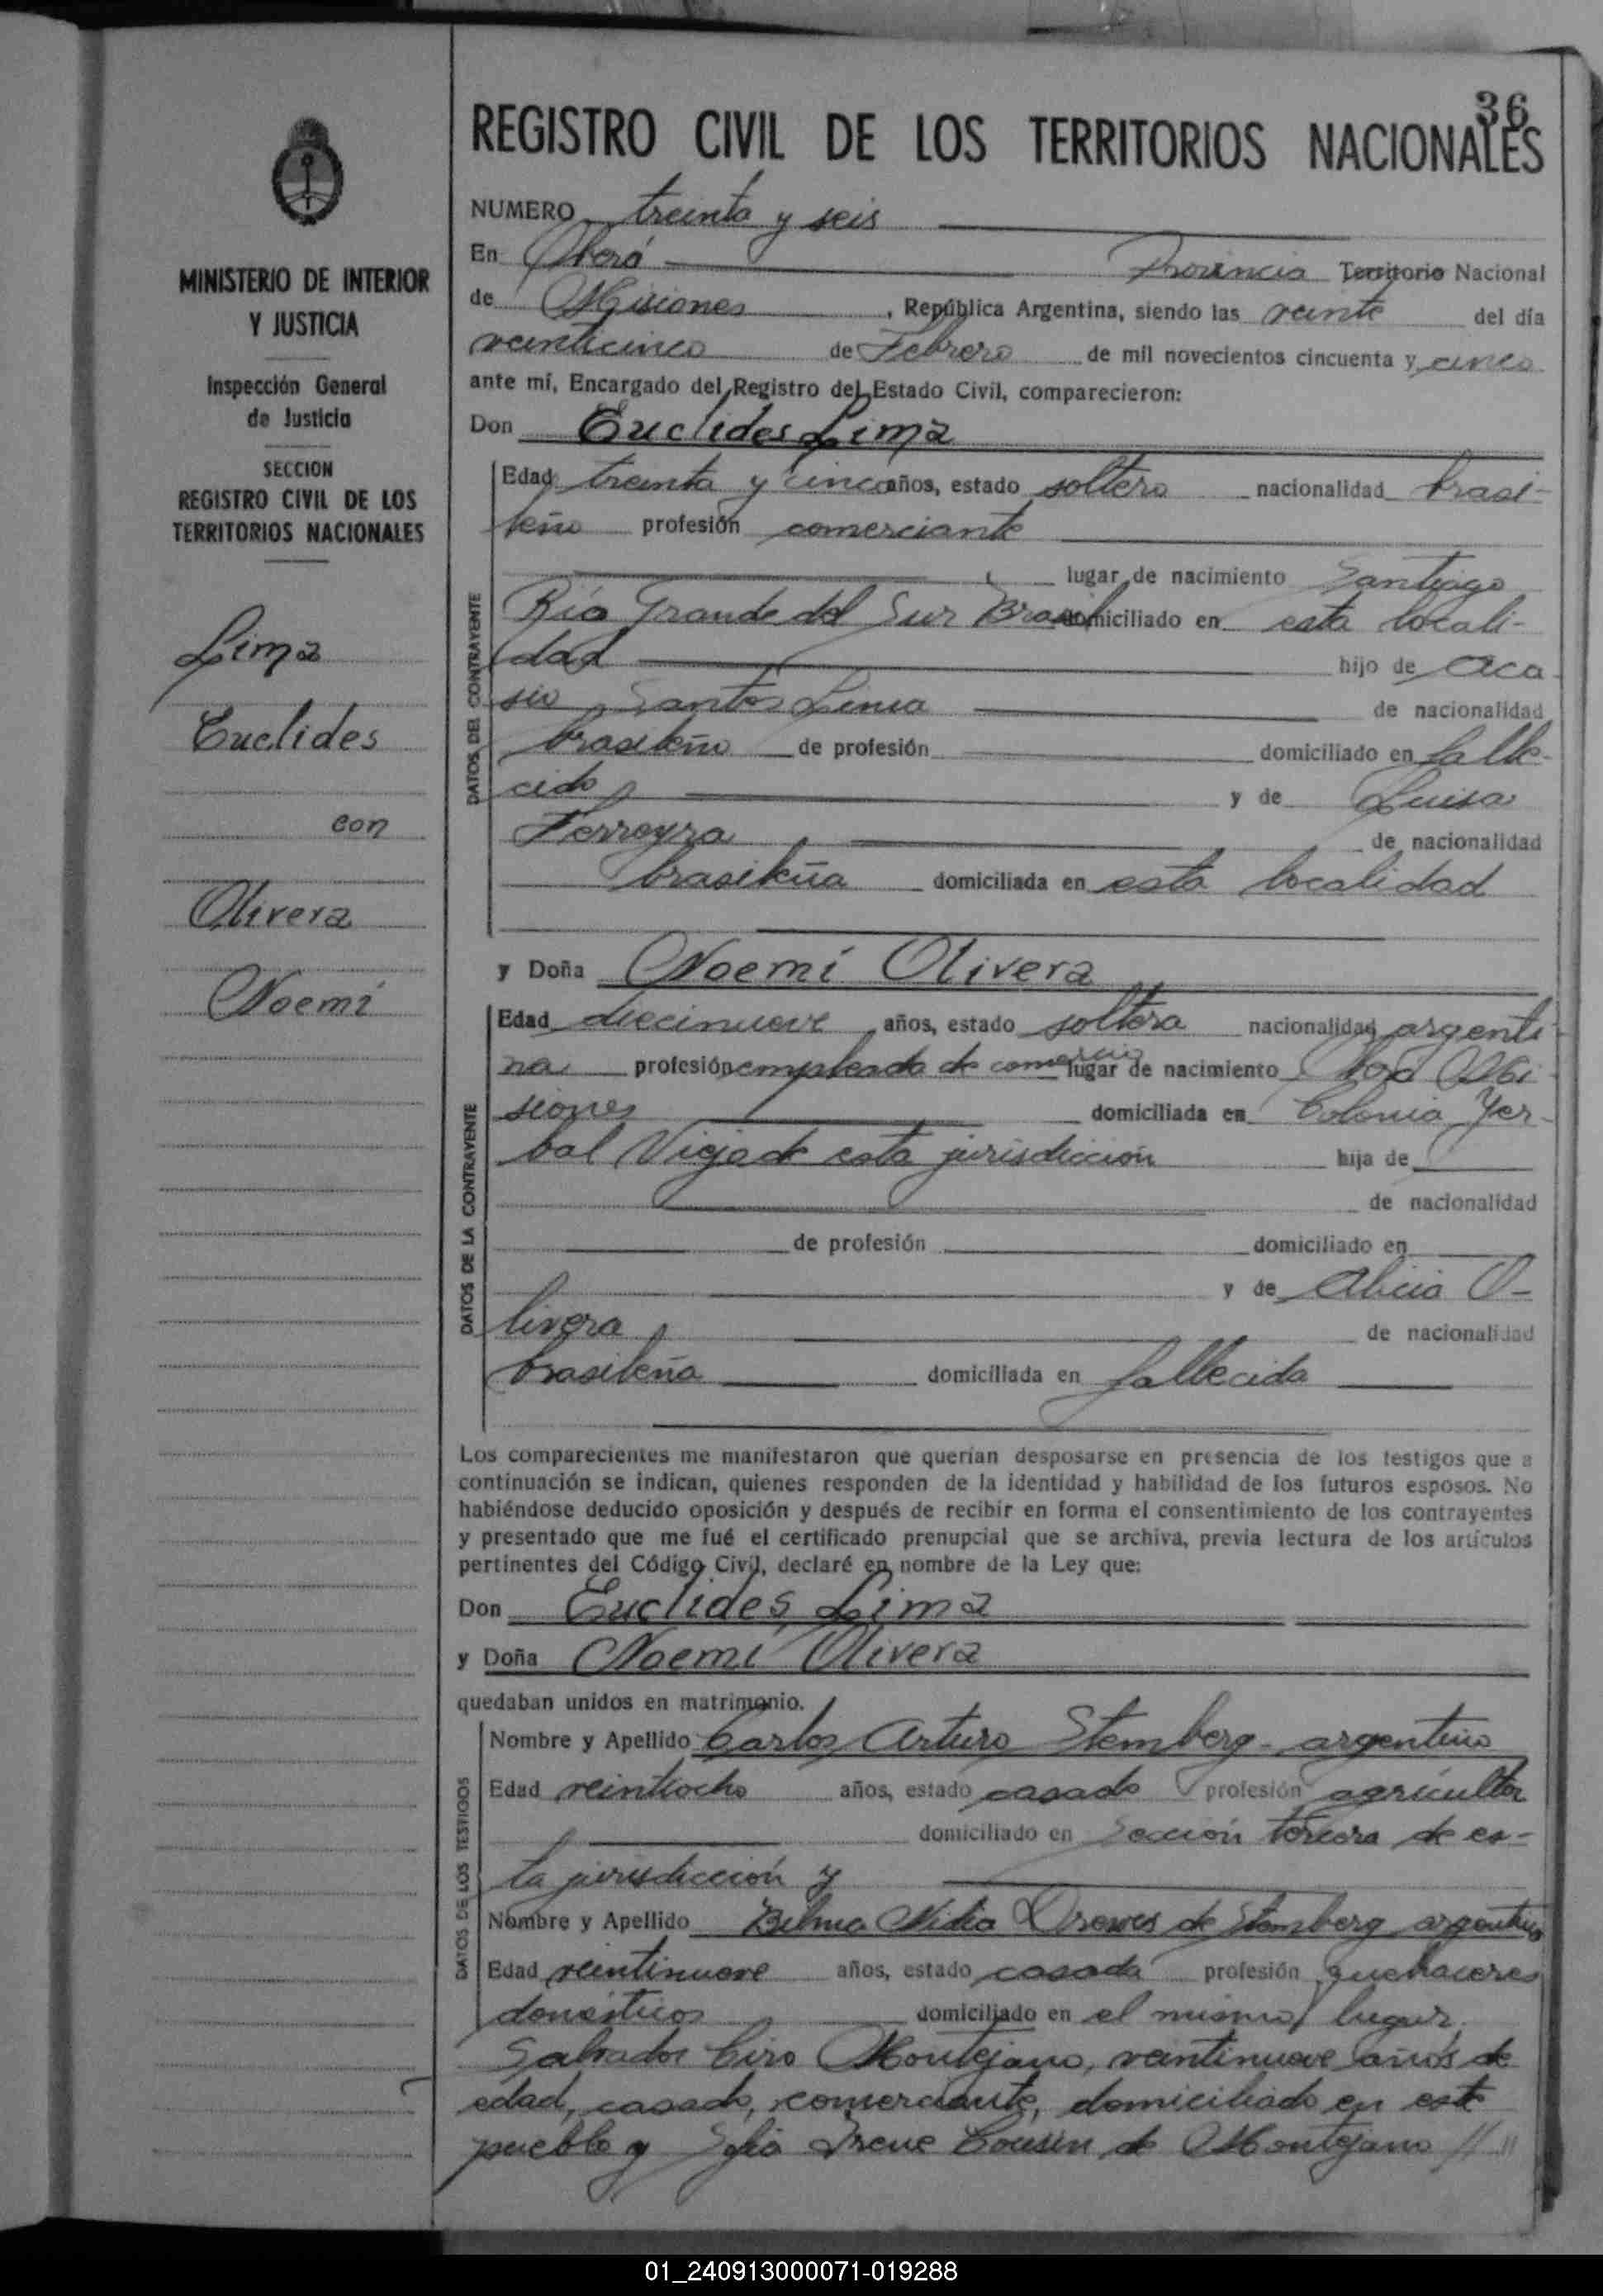 36
REGISTRO CIVIL DE LOS TERRITORIOS NACIONALES
MINISTERIO DE INTERIOR
Y JUSTICIA
Inspección General
de Justicia
SECCION
REGISTRO CIVIL DE LOS
TERRITORIOS NACIONALES
Lima
Euclides
con
Olivera
Noemí
NUMERO treinta y seis
En Oberá Provincia Territorio Nacional
de Misiones, República Argentina, siendo las veinte del día
veinticinco de Febrero de mil novecientos cincuenta y cinco
ante mí, Encargado del Registro del Estado Civil, comparecieron:
Don Euclides Lima
DATOS DEL CONTRAYENTE
Edad treinta y cinco años, estado soltero nacionalidad brasi-
leño profesión comerciante
lugar de nacimiento Santiago
Río Grande del Sur Brasil domiciliado en esta locali-
dad hijo de Aca
sio Santos Lima de nacionalidad
brasileño de profesión domiciliado en falle-
cido y de Luisa
Ferreyra de nacionalidad
brasileña domiciliada en esta localidad
y Doña Noemí Olivera
DATOS DE LA CONTRAYENTE
Edad diecinueve años, estado soltera nacionalidad argenti-
na profesión empleada de comercio lugar de nacimiento Mi-
siones domiciliada en Colonia Yer-
bal Viejo de esta jurisdicción hija de
de nacionalidad
de profesión domiciliado en
y de Alicia O-
livera de nacionalidad
brasileña domiciliada en fallecida
Los comparecientes me manifestaron que querían desposarse en presencia de los testigos que a
continuación se indican, quienes responden de la identidad y habilidad de los futuros esposos. No
habiéndose deducido oposición y después de recibir en forma el consentimiento de los contrayentes
y presentado que me fué el certificado prenupcial que se archiva, previa lectura de los artículos
pertinentes del Código Civil, declaré en nombre de la Ley que:
Don Euclides Lima
y Doña Noemí Olivera
quedaban unidos en matrimonio.
DATOS DE LOS TESTIGOS
Nombre y Apellido Carlos Arturo Stemberg - argentino
Edad veintiocho años, estado casado profesión agricultor
domiciliado en Sección tercera de es-
ta jurisdicción y
Nombre y Apellido Bilma Nidia Drewes de Stemberg argentina
Edad veintinueve años, estado casada profesión quehaceres
domésticos domiciliado en el mismo lugar,
Salvador Ciro Montejano, veintinueve años de
edad, casado, comerciante, domiciliado en este
pueblo y Irene Cousin de Montejano //"
01_240913000071-019288